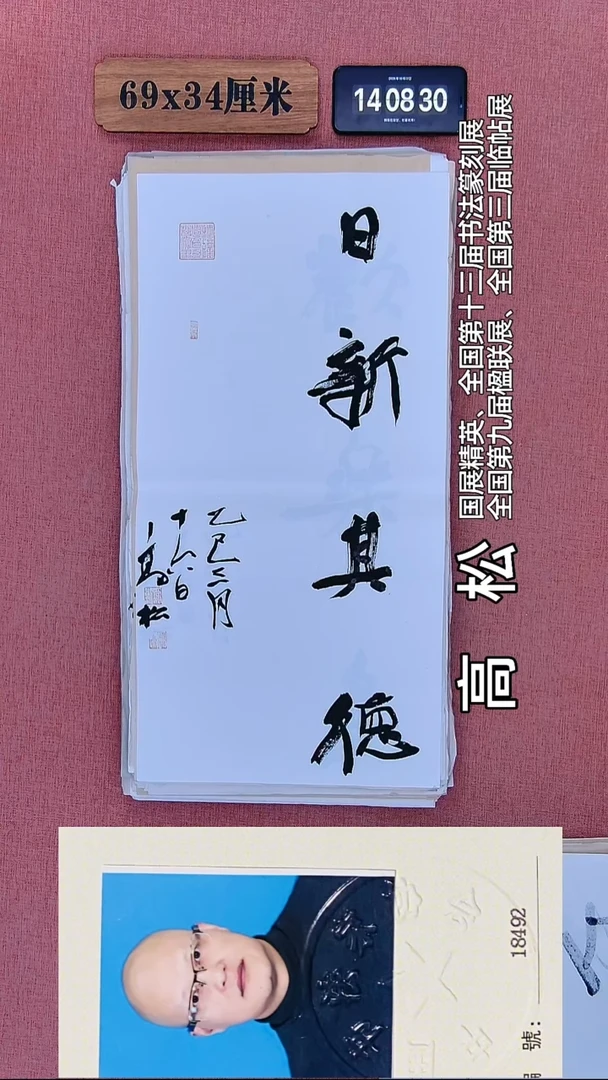 69x34厘米
14 08 30
日新其德
乙巳三月
十六日
高松
国展精英、全国第十三届书法篆刻展
全国第九届楹联展、全国第三届临帖展
高 松
18492
號：